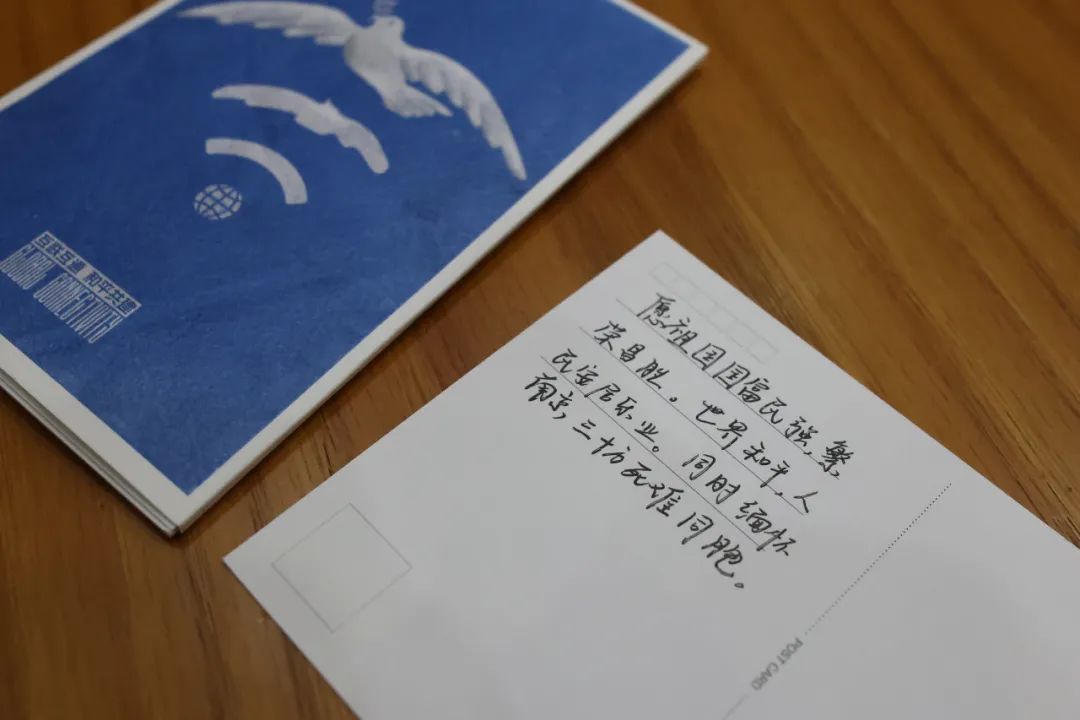 互联互通 和平共德
GLOBAL CONNECTIVITY
愿祖国国富民强,繁
荣昌胜。世界和平,人
民安居乐业。同时缅怀
南京,三十万死难同胞。
POST CARD